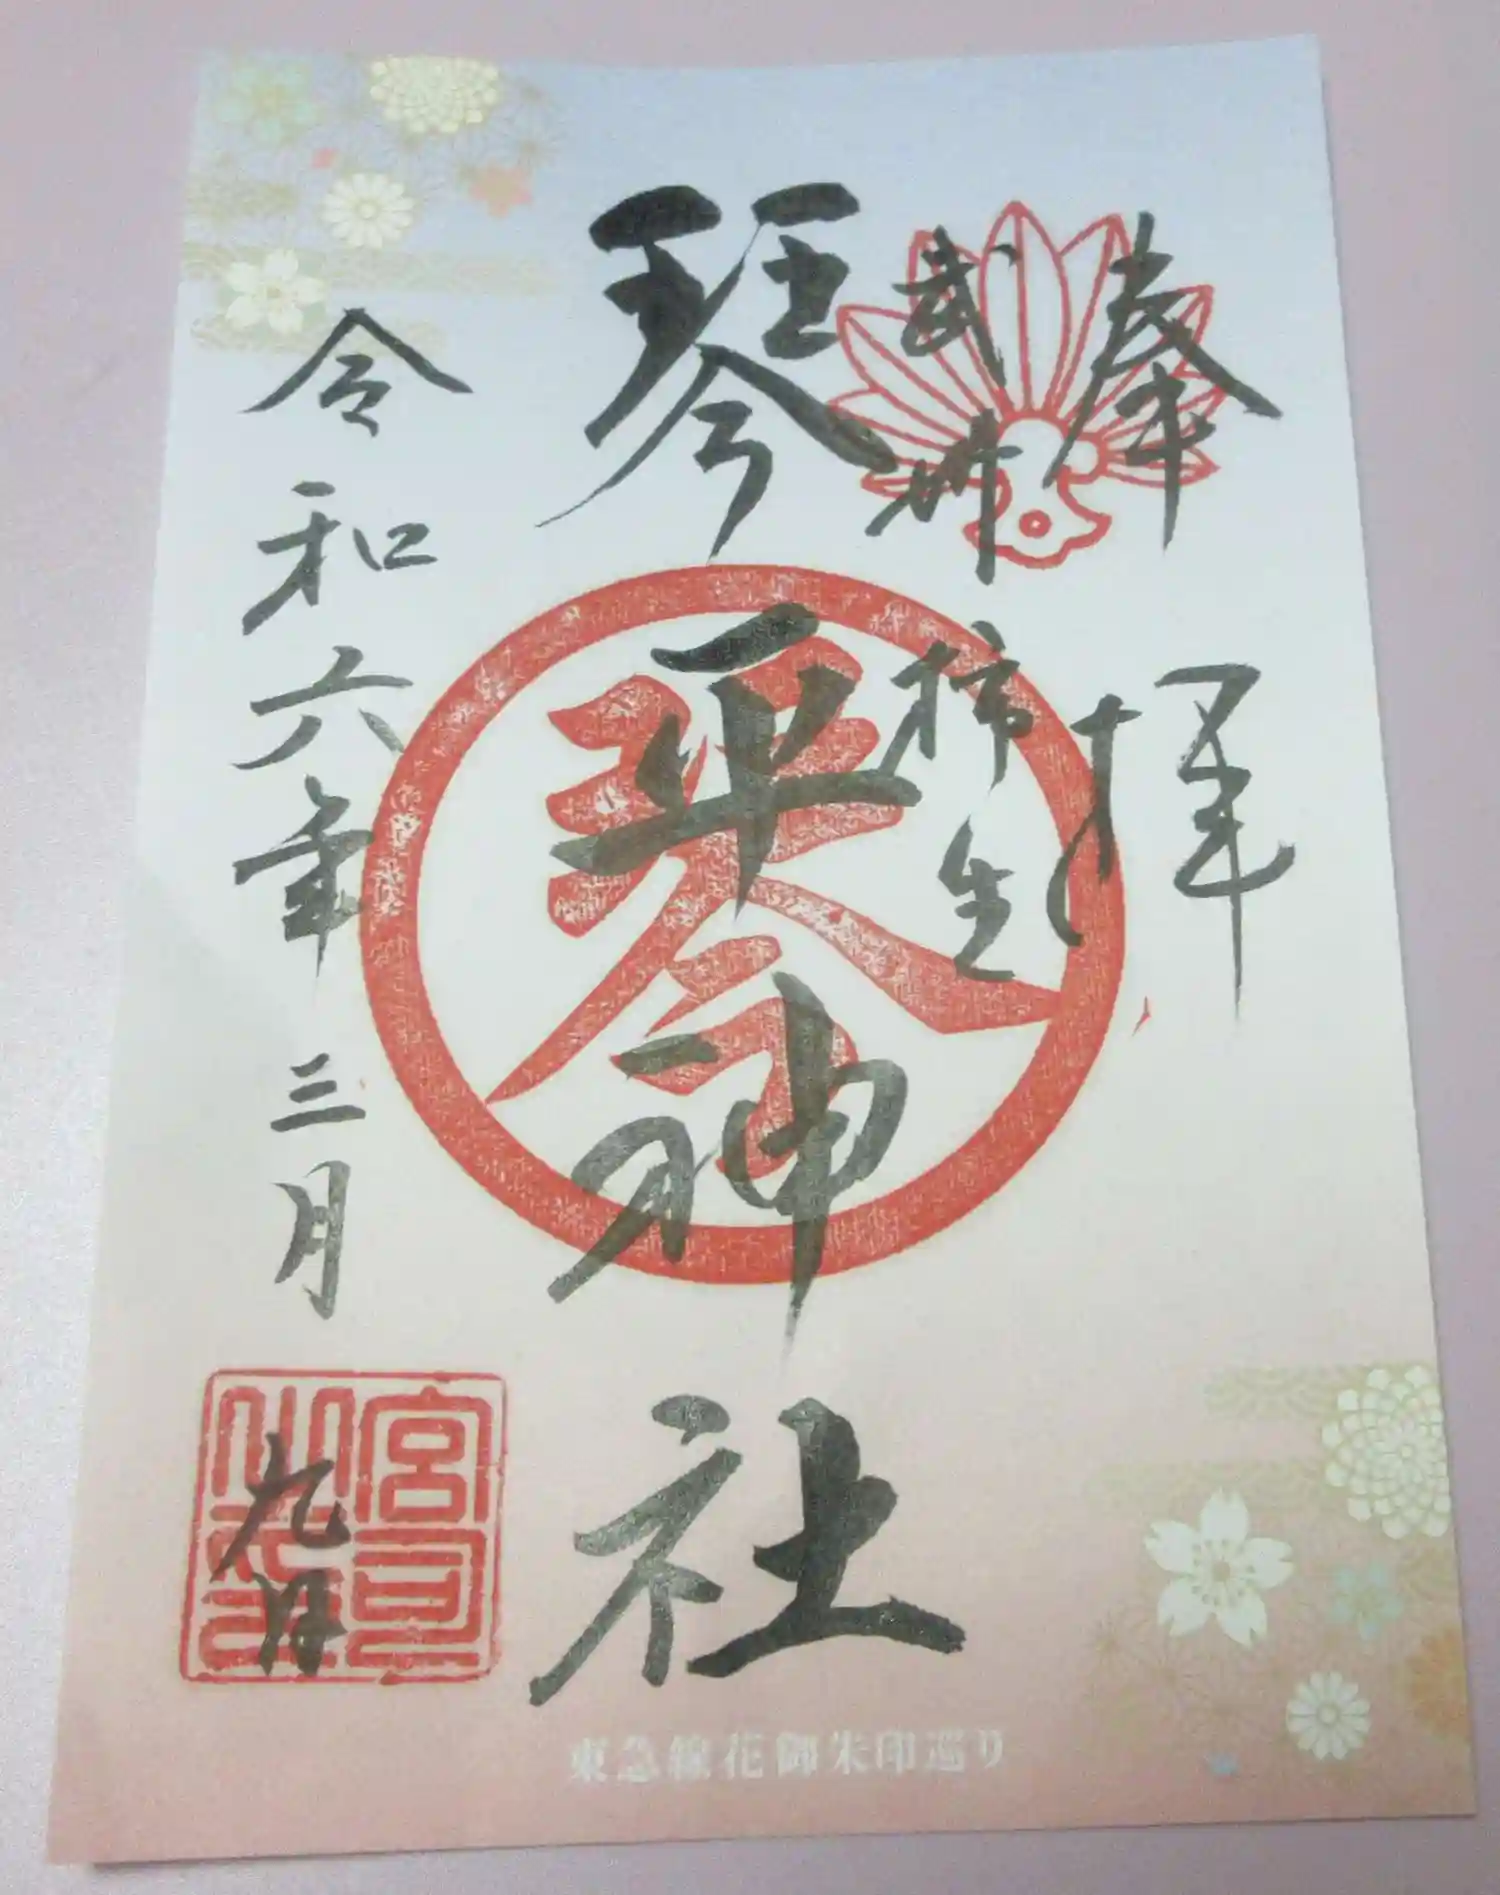 奉拝
武州柿生
琴平神社
令和六年三月九日
宮司
東急線花御朱印巡り